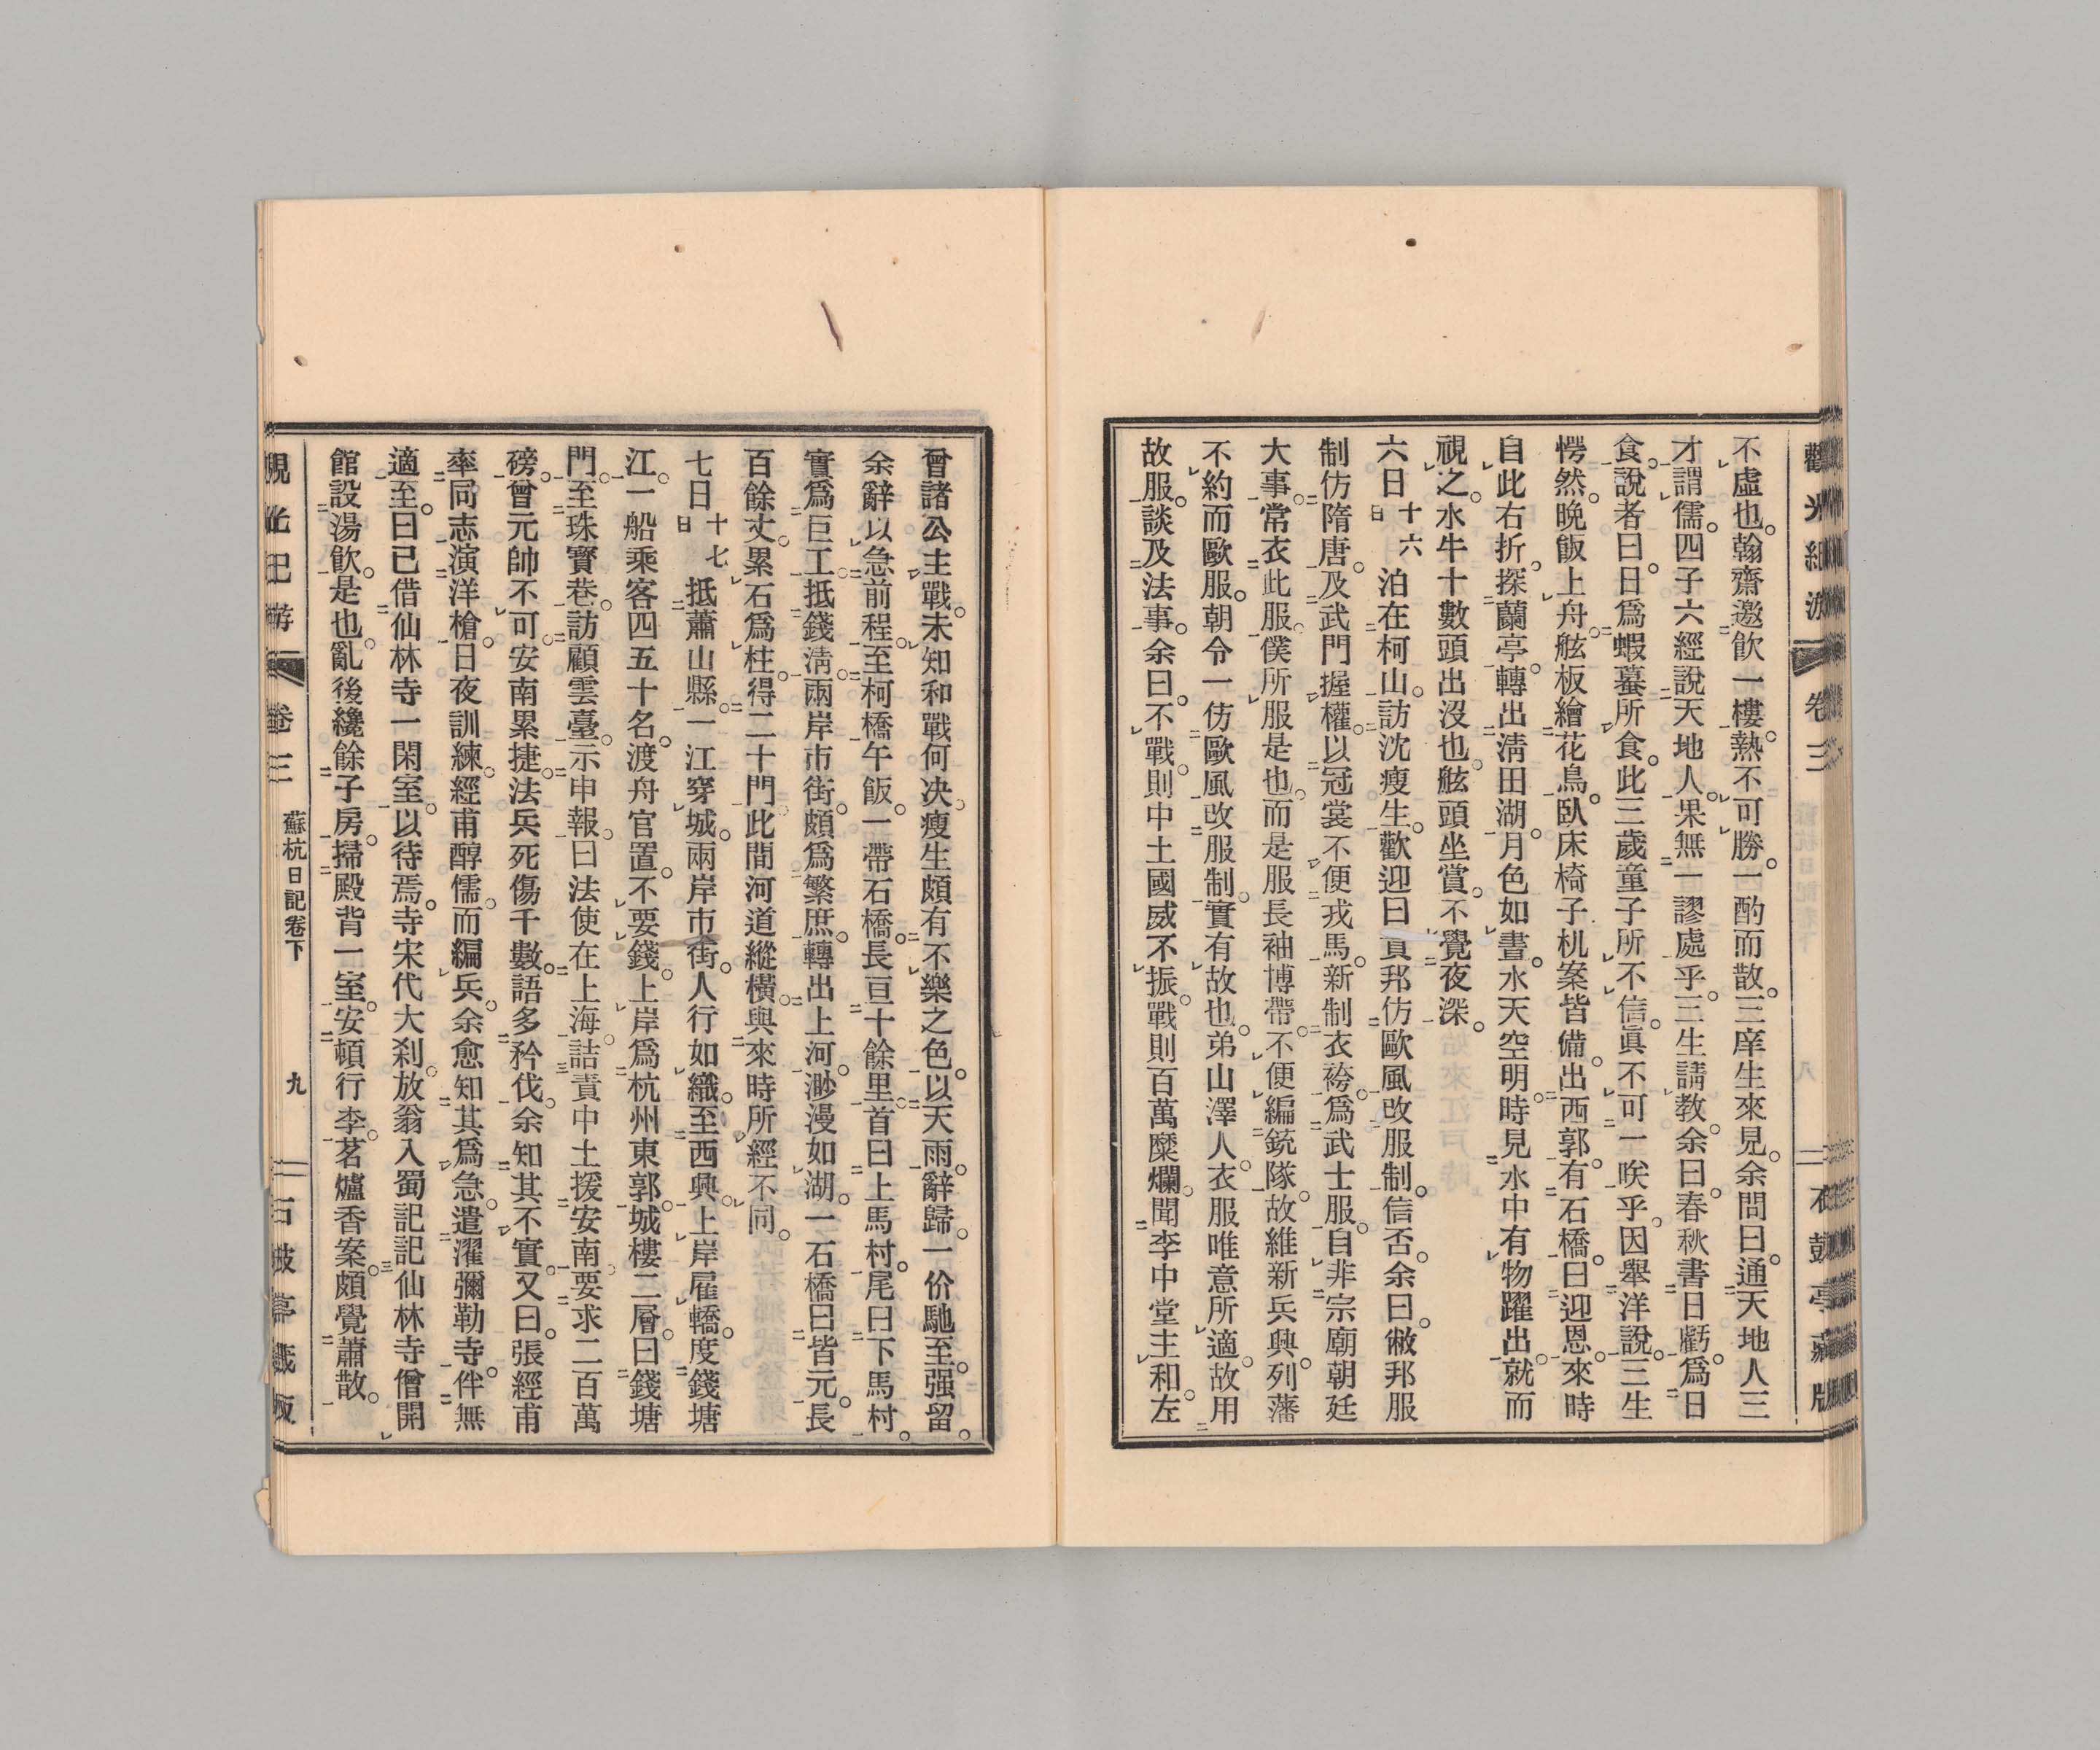 不虛也。翰齋邀飮一樓。熱不可勝。一酌而散。三庠生來見。余問曰。通天地人三
才謂儒。四子六經說天地人。果無一謬處乎。三生請教。余曰。春秋書日虧。爲日
食。說者曰。日爲蝦蟇所食。此三歲童子所不信。眞不可一咲乎。因舉洋說。三生
愕然。晩飯上舟。舷板繪花鳥。臥床椅子机案皆備。出西郭。有石橋。曰迎恩。來時
自此右折。探蘭亭。轉出淸田湖。月色如晝。水天空明。時見水中有物躍出。就而
視之。水牛十數頭出沒也。舷頭坐賞。不覺夜深。
六日十六日泊在柯山。訪沈瘦生。歡迎曰。貴邦仿歐風改服制。信否。余曰。敝邦服
制仿隋唐。及武門握權。以冠裳不便戎馬。新制衣袴。爲武士服。自非宗廟朝廷
大事。常衣此服。僕所服是也。而是服長袖博帶。不便編銃隊。故維新兵興。列藩
不約而歐服。朝令一仿歐風改服制。實有故也。弟山澤人。衣服唯意所適。故用
故服。談及法事。余曰。不戰。則中土國威不振。戰則百萬糜爛。聞李中堂主和。左
曾諸公主戰。未知和戰何决。瘦生頗有不樂之色。以天雨。辭歸。一价馳至。强留。
余辭以急前程。至柯橋午飯。一帶石橋。長亘十餘里。首曰上馬村。尾曰下馬村。
實爲巨工。抵錢淸。兩岸市街。頗爲繁庶。轉出上河。渺漫如湖。一石橋曰皆元。長
百餘丈。累石爲柱。得二十門。此間河道縱橫。與來時所經不同。
七日十七日抵蕭山縣。一江穿城。兩岸市街。人行如織。至西興。上岸雇轎。度錢塘
江。一船乘客四五十名。渡舟官置。不要錢。上岸爲杭州東郭。城樓二層。曰錢塘
門。至珠寳巷。訪顧雲臺。示申報。曰法使在上海。詰責中土援安南。要求二百萬
磅。曾元帥不可。安南累捷。法兵死傷千數。語多矜伐。余知其不實。又曰。張經甫
率同志演洋槍。日夜訓練。經甫醇儒。而編兵。余愈知其爲急。遣濯彌勒寺。伴無
適至。曰已借仙林寺一閑室。以待焉。寺宋代大刹。放翁入蜀記記仙林寺僧開
館設湯飮。是也。亂後纔餘子房。掃殿背一室。安頓行李。茗爐香案。頗覺蕭散。
觀光紀游 卷三 蘇杭日記卷下 九 石鼓亭藏版